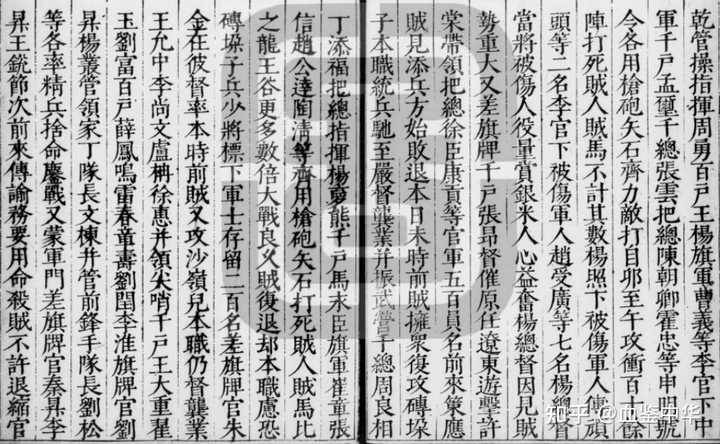 乾管操指揮周勇百戶王楊旗軍曹義等李官下中
軍千戶孟璽千總張雲把總陳朝卿霍忠等申明號
令各用槍砲矢石齊力敵打自卯至午攻衝百十餘
陣打死賊人賊馬不計其數楊照下被傷軍人傅頑
頭等二名李官下被傷軍人趙受廣等七名楊總督
當將被傷人役量賞銀米人心益奮楊總督因見賊
勢重大又差旗牌千戶張昂督催原任遼東遊擊許
棠帶領把總徐臣康貢等官軍五百員名前來策應
賊見添兵方始敗退本日未時前賊擁眾復攻磚垛
子本職統兵馳至嚴督龔業并振武營千總周良相
丁添福把總指揮楊夢能千戶馬末臣旗軍崔章張
信趙公達陶清等齊用槍砲矢石打死賊人賊馬比
之龍王谷更多數倍大戰良久賊復退却本職慮恐
磚垛子兵少將標下軍士存留二百名差旗牌官朱
金在彼督率本時前賊又攻沙嶺兒本職仍督龔業
王允中李尚文盧柟徐惠并領尖哨千戶王大重翟
玉劉富百戶薛鳳鳴雷春童壽劉閏李淮旗牌官劉
昇楊叢管領家丁隊長文棟并管前鋒手隊長劉松
等各率精兵捨命鏖戰又蒙軍門差旗牌官秦昇李
昇王銃節次前來傳諭務要用命殺賊不許退縮官
知乎 @血鉴中华